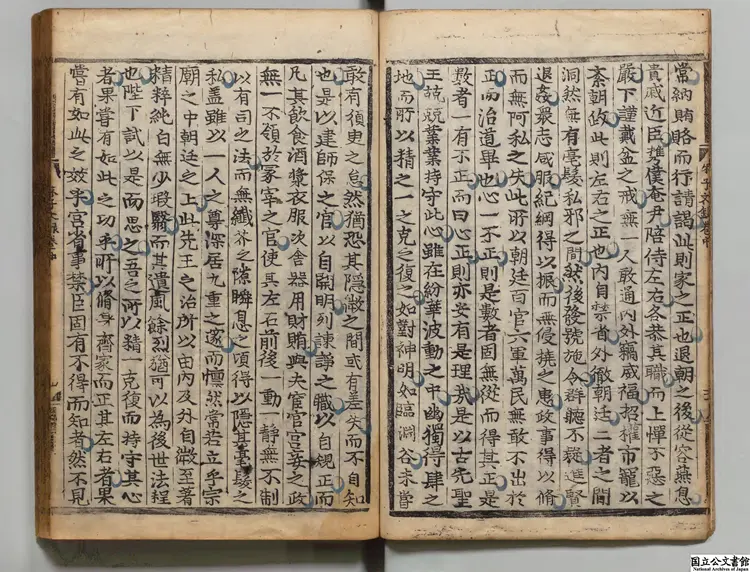 當納賄賂而行請謁此則家之正也退朝之後從容燕息
貴戚近臣攜僕奄尹陪侍左右各恭其職而上憚不惡之
嚴下謹戴盆之戒無一人敢通內外竊威福招權市寵以
紊朝政此則左右之正也內自禁省外徹朝廷二者之間
洞然無有毫髮私邪之間然後發號施令群聽不疑進賢
退姦衆志咸服紀綱得以振而無侵撓之患政事得以脩
而無阿私之失此所以朝廷百官六軍萬民無敢不出於
正而治道畢也心一不正則是數者固無從而得其正是
數者一有不正而曰心正則亦安有是理哉是以古先聖
王兢兢業業持守此心雖在紛華波動之中幽獨得肆之
地而所以精之一之克之復之如對神明如臨淵谷未嘗
敢有須臾之怠然猶恐其隱微之間或有差失而不自知
也是以建師保之官以自開明列諫諍之職以自規正而
凡其飲食酒漿衣服次舍器用財賄與夫宦官宮妾之政
無一不領於冢宰之官使其左右前後一動一靜無不制
以有司之法而無纖芥之隙瞬息之頃得以隱其毫髮之
私蓋雖以一人之尊深居九重之邃而懍然常若立乎宗
廟之中朝廷之上此先王之治所以由內及外自微至著
精粹純白無少瑕翳而其遺風餘烈猶可以為後世法程
也陛下試以是而思之吾之所以精一克復而持守其心
者果嘗有如此之功乎所以脩身齊家而正其左右者果
嘗有如此之效乎宮省事禁臣固有不得而知者然不見
国立公文書館
National Archives of Japan